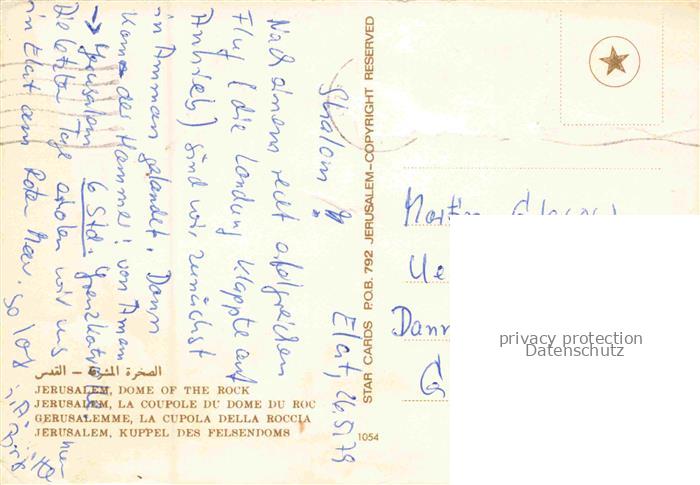 Shalom!!
Elat, 26.5.79
Nach einem recht
Flug (die Landung klappte auf
Anhieb) sind wir zunächst
in Amman gelandet. Dann
kam der Hammer: von Amman
→ Jerusalem 6 Std.
Die letzten Tage erholen wir uns
in Elat am Roten Meer. So long
STAR CARDS P.O.B. 792 JERUSALEM–COPYRIGHT RESERVED
الصخرة المشرفة — القدس
JERUSALEM, DOME OF THE ROCK
JERUSALEM, LA COUPOLE DU DOME DU ROC
GERUSALEMME, LA CUPOLA DELLA ROCCIA
JERUSALEM, KUPPEL DES FELSENDOMS
1054
Martin
Ue
Dann
G
privacy protection
Datenschutz